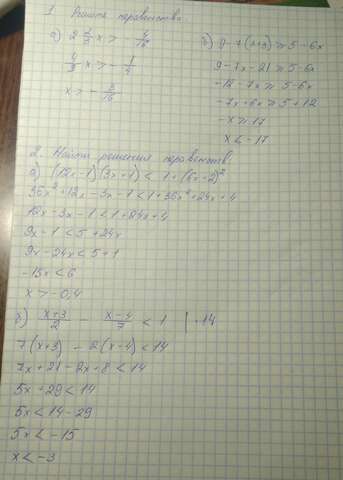 1. Решите неравенство.
а) 2 2/3 x > - 4/16
б) 9 - 7(x+3) ≥ 5 - 6x
x > - 3/16
9 - 7x - 21 ≥ 5 - 6x
-12 - 7x ≥ 5 - 6x
-7x + 6x ≥ 5 + 12
-x ≥ 17
x < -17
2. Найти решения неравенств.
а) (12x-1)(3x+1) < 1 + (6x+2)²
36x² + 12x - 3x - 1 < 1 + 36x² + 24x + 4
12x - 3x - 1 < 1 + 24x + 4
9x - 1 < 5 + 24x
9x - 24x < 5 + 1
-15x < 6
x > -0,4
б) x+3/2 - x-4/7 < 1 | · 14
7(x+3) - 2(x-4) < 14
7x + 21 - 2x + 8 < 14
5x + 29 < 14
5x < 14 - 29
5x < -15
x < -3